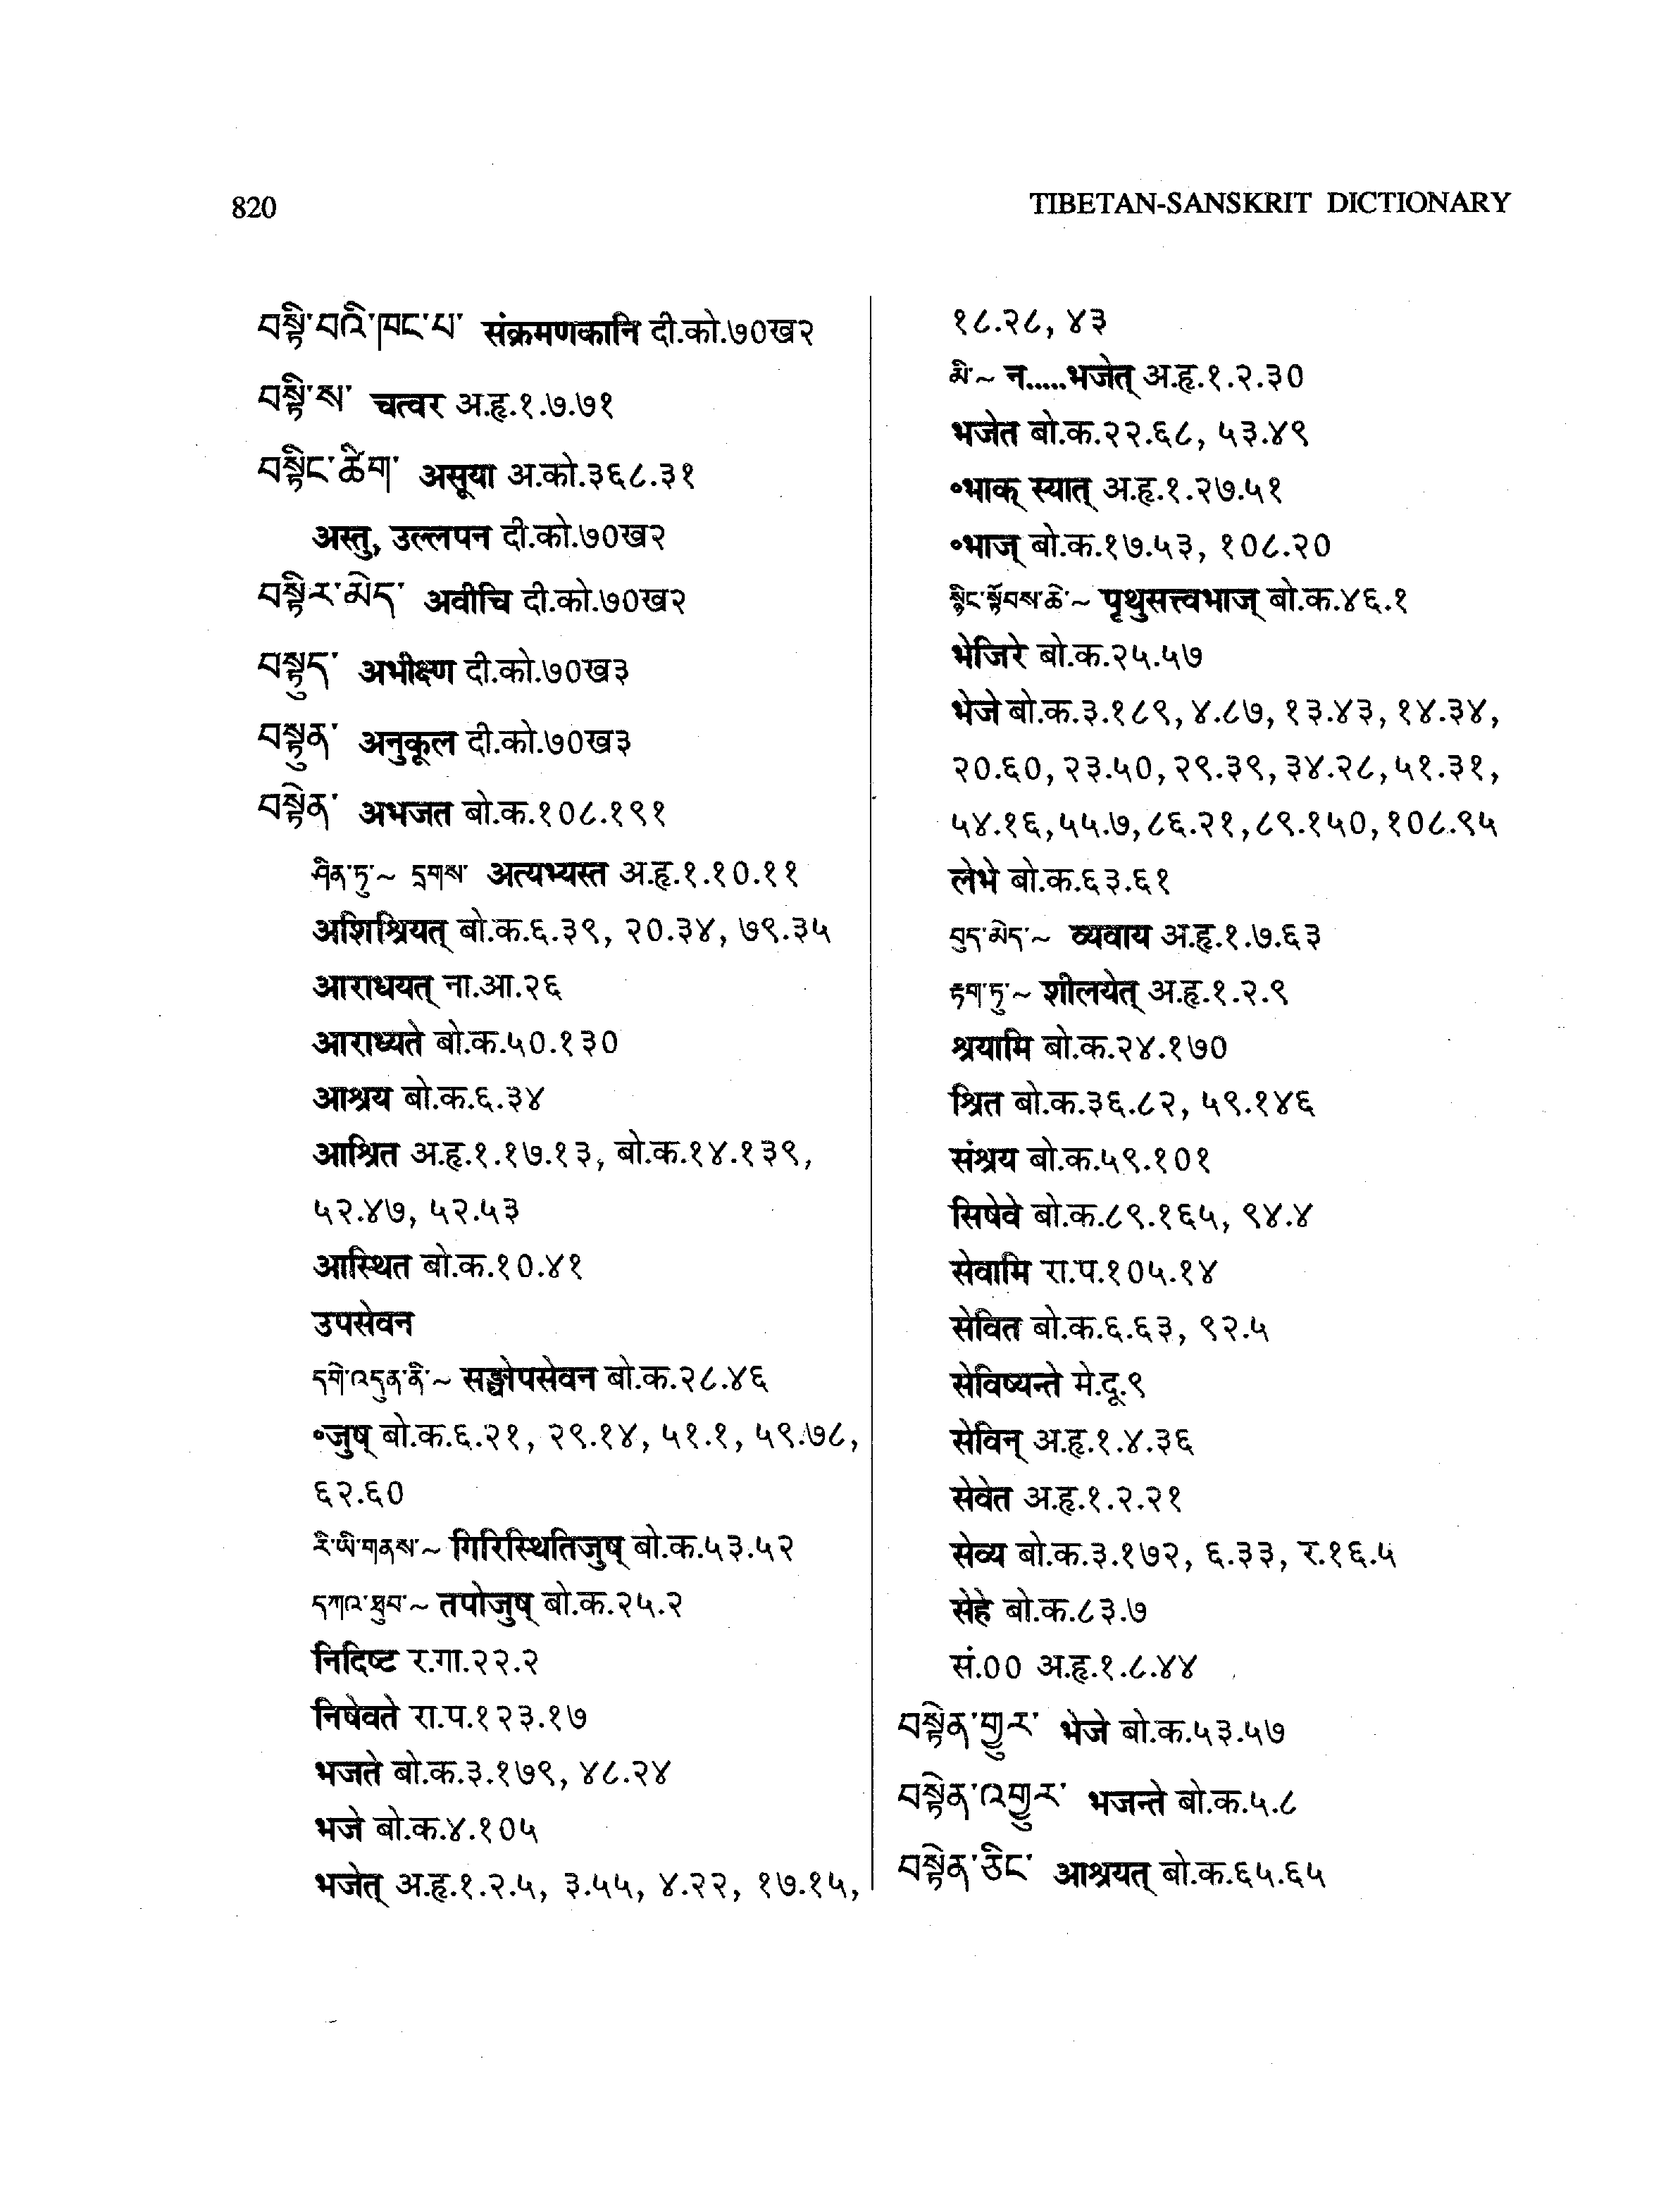 820
TIBETAN-SANSKRIT DICTIONARY
བསྟི་བའི་ཁང་པ་ संक्रमणकानि दी.को.७०ख२
བསྟི་ས་ चत्वर अ.हृ.१.७.७१
བསྟིང་ཚིག་ असूया अ.को.३६८.३१
अस्तु, उल्लपन दी.को.७०ख२
བསྟིར་མེད་ अवीचि दी.को.७०ख२
བསྟུད་ अभीक्ष्ण दी.को.७०ख३
བསྟུན་ अनुकूल दी.को.७०ख३
བསྟེན་ अभजत बो.क.१०८.१९१
ཤིན་ཏུ་~ དྲགས་ अत्यभ्यस्त अ.हृ.१.१०.११
अशिश्रियत् बो.क.६.३९, २०.३४, ७९.३५
आराधयत् ना.आ.२६
आराध्यते बो.क.५०.१३०
आश्रय बो.क.६.३४
आश्रित अ.हृ.१.१७.१३, बो.क.१४.१३९,
५२.४७, ५२.५३
आस्थित बो.क.१०.४१
उपसेवन
དགེ་འདུན་ནི་~ सङ्घोपसेवन बो.क.२८.४६
॰जुष् बो.क.६.२१, २९.१४, ५१.१, ५९.७८,
६२.६०
རི་ཡི་གནས་~ गिरिस्थितिजुष् बो.क.५३.५२
དཀའ་ཐུབ་~ तपोजुष् बो.क.२५.२
निदिष्ट र.गा.२२.२
निषेवते रा.प.१२३.१७
भजते बो.क.३.१७९, ४८.२४
भजे बो.क.४.१०५
भजेत् अ.हृ.१.२.५, ३.५५, ४.२२, १७.१५,
१८.२८, ४३
མི་~ न.....भजेत् अ.हृ.१.२.३०
भजेत बो.क.२२.६८, ५३.४९
॰भाक् स्यात् अ.हृ.१.२७.५१
॰भाज् बो.क.१७.५३, १०८.२०
སྙིང་སྟོབས་ཆེ་~ पृथुसत्त्वभाज् बो.क.४६.१
भेजिरे बो.क.२५.५७
भेजे बो.क.३.१८९, ४.८७, १३.४३, १४.३४,
२०.६०, २३.५०, २९.३९, ३४.२८, ५१.३१,
५४.१६, ५५.७, ८६.२१, ८९.१५०, १०८.९५
लेभे बो.क.६३.६१
བུད་མེད་~ व्यवाय अ.हृ.१.७.६३
རྟག་ཏུ་~ शीलयेत् अ.हृ.१.२.९
श्रयामि बो.क.२४.१७०
श्रित बो.क.३६.८२, ५९.१४६
संश्रय बो.क.५९.१०१
सिषेवे बो.क.८९.१६५, ९४.४
सेवामि रा.प.१०५.१४
सेवित बो.क.६.६३, ९२.५
सेविष्यन्ते मे.दू.९
सेविन् अ.हृ.१.४.३६
सेवेत अ.हृ.१.२.२१
सेव्य बो.क.३.१७२, ६.३३, र.१६.५
सेहे बो.क.८३.७
सं.०० अ.हृ.१.८.४४
བསྟེན་གྱུར་ भेजे बो.क.५३.५७
བསྟེན་འགྱུར་ भजन्ते बो.क.५.८
བསྟེན་ཅིང་ आश्रयत् बो.क.६५.६५